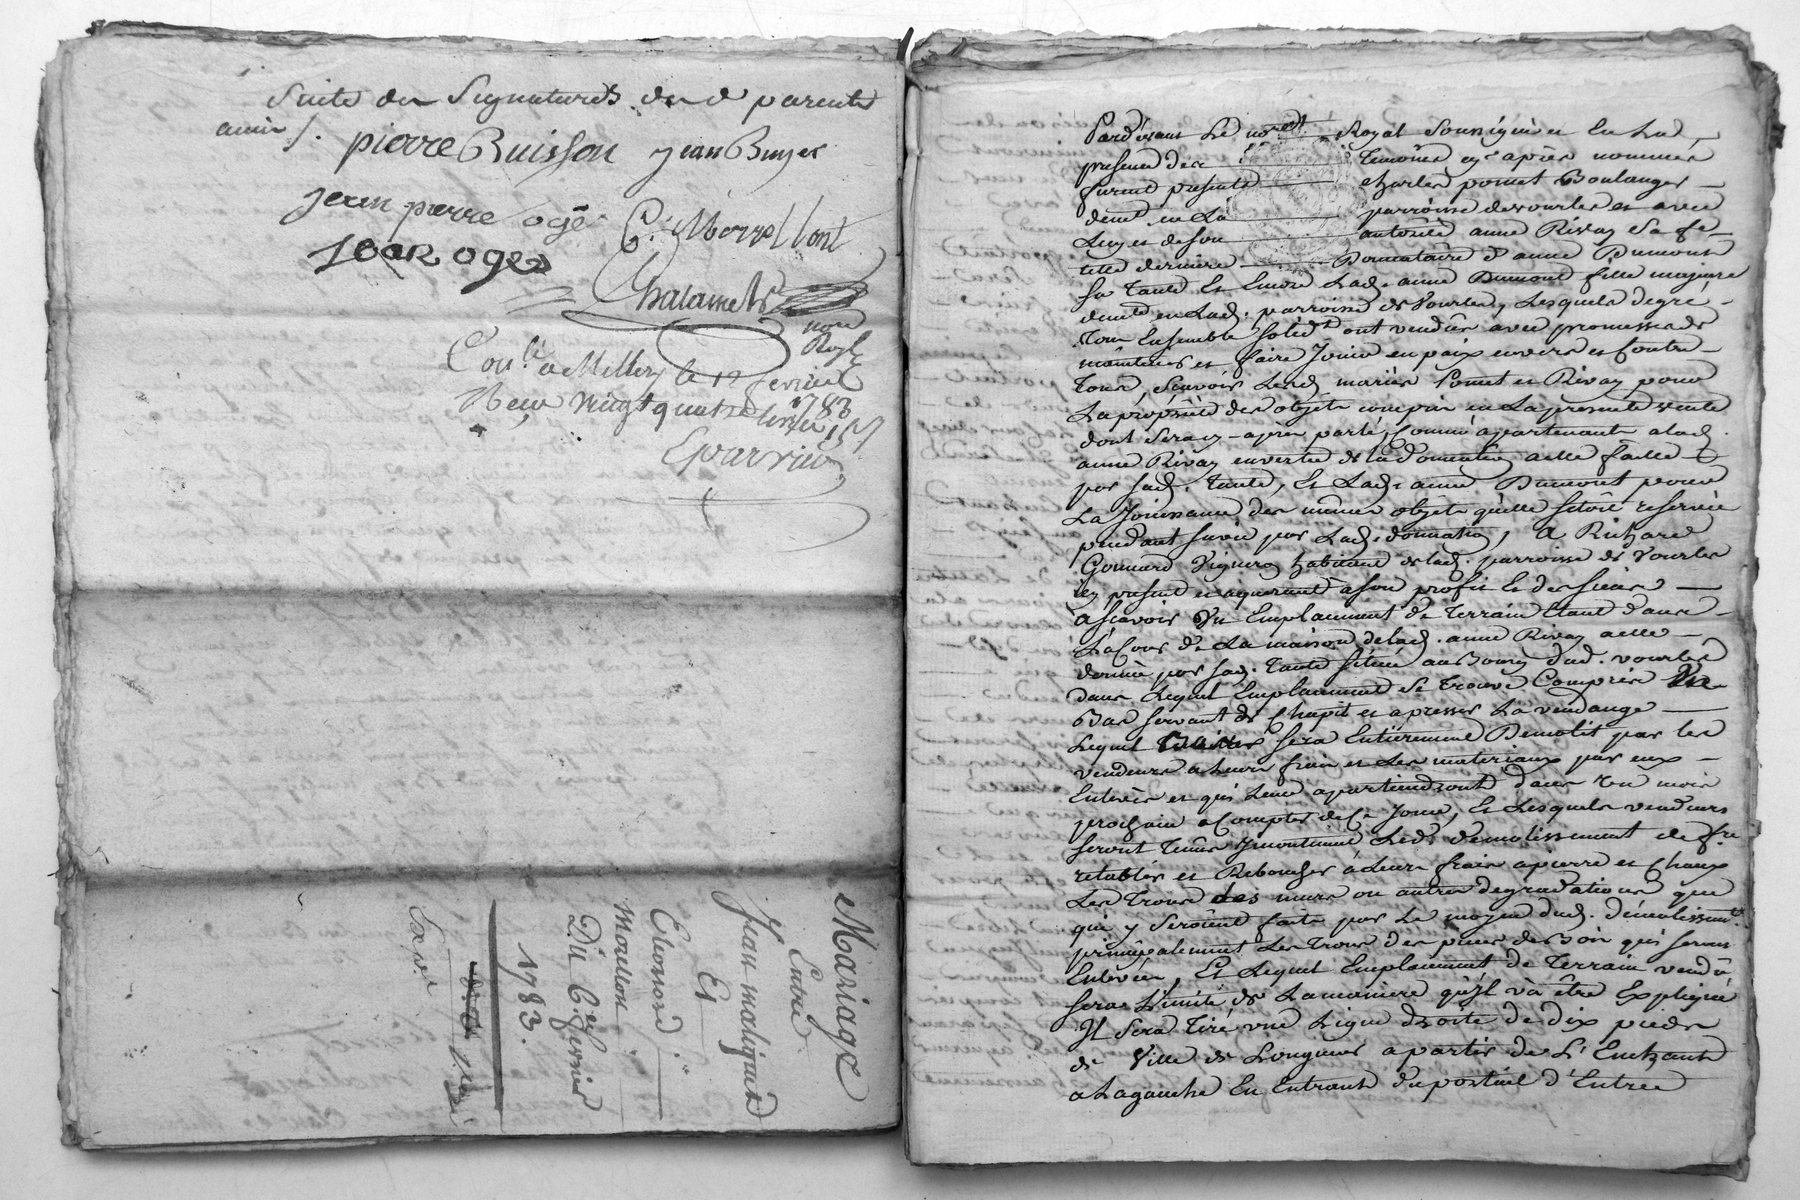 Suite des Signatures desd parents
amis /.
pierre Buisson jean Buyer
jean pierre ogé
C. Morrel
Jean oges
Chalamel
nore
Royl
Conlé a Millery le 12 fevrier
1783
Recu vingt quatre livres 15 s
Mariage
Entre
Jean maligned
Et
Eleonord
Moullon
Du 6e fevrier
1783.
Pardevant Le notre Royal Soussigné et En La
presence des Temoins cy apres nommés
furent presents Charles pomet Boulanger
demt en La parroisse de vourles et avec
Luy et de son autorité anne Rivay Sa fe
lad derniere Donnataire d'anne Dumont
Sa Tante Et Encore Lad. anne Dumont fille majeure
demte en Lad. parroisse de Vourles, Lesquels de gré
Tous Ensemble solidt ont vendus avec promesse de
maintenir et faire Jouir en paix envers et Contre
Tous, Scavoir Lesd mariés Pomet et Rivay pour
La propriété des objets compris en La presente vente
dont Sera cy-apres parlé, Comme apartenants a lad.
anne Rivay en vertu de la donnation a elle faitte
par sad. Tante, Et Lad. anne Dumont pour
La Jouissance des mêmes objets qu'elle s'etoit reservée
pendant sa vie par Lad. donnation, A Richard
Gonnard Vigneron habitant de lad. parroisse de Vourles
cy present et aquerant a son profit Et des siens
a Scavoir Un Emplacement de Terrain Etant dans
La Cour de La maison de lad. anne Rivay a elle
donnée par sad. Tante située au Bourg dud. vourles
dans Lequel Emplacement Se Trouve Compris Un
Bas servant de Chapit et a presser La vendange
Lequel Batim sera Entierement Demolit par les
vendeurs a Leurs frais et Les materiaux par eux
Enlevés et qui Leur apartiendront dans un mois
prochain a Compter de Ce Jour, Et Lesquels vendeurs
seront Tenus Jncontinent Led. demolissement de fre
retablir et Reboucher a Leurs frais a pierre et Chaux
Les Trous des murs ou autres degradations que
qui y Seroient faits par Le moyen dud. demolissemt
principalement Les Trous des pieces de Bois qui seront
Enlevées, Et Lequel Emplacement de Terrain vendu
sera Limité de La maniere qu'Jl va être Expliqué
Jl Sera Tiré une Ligne droite de dix pieds
de Ville de Longueur a partir de L'Enchant
a La gauche En Entrant du portail d'Entrée